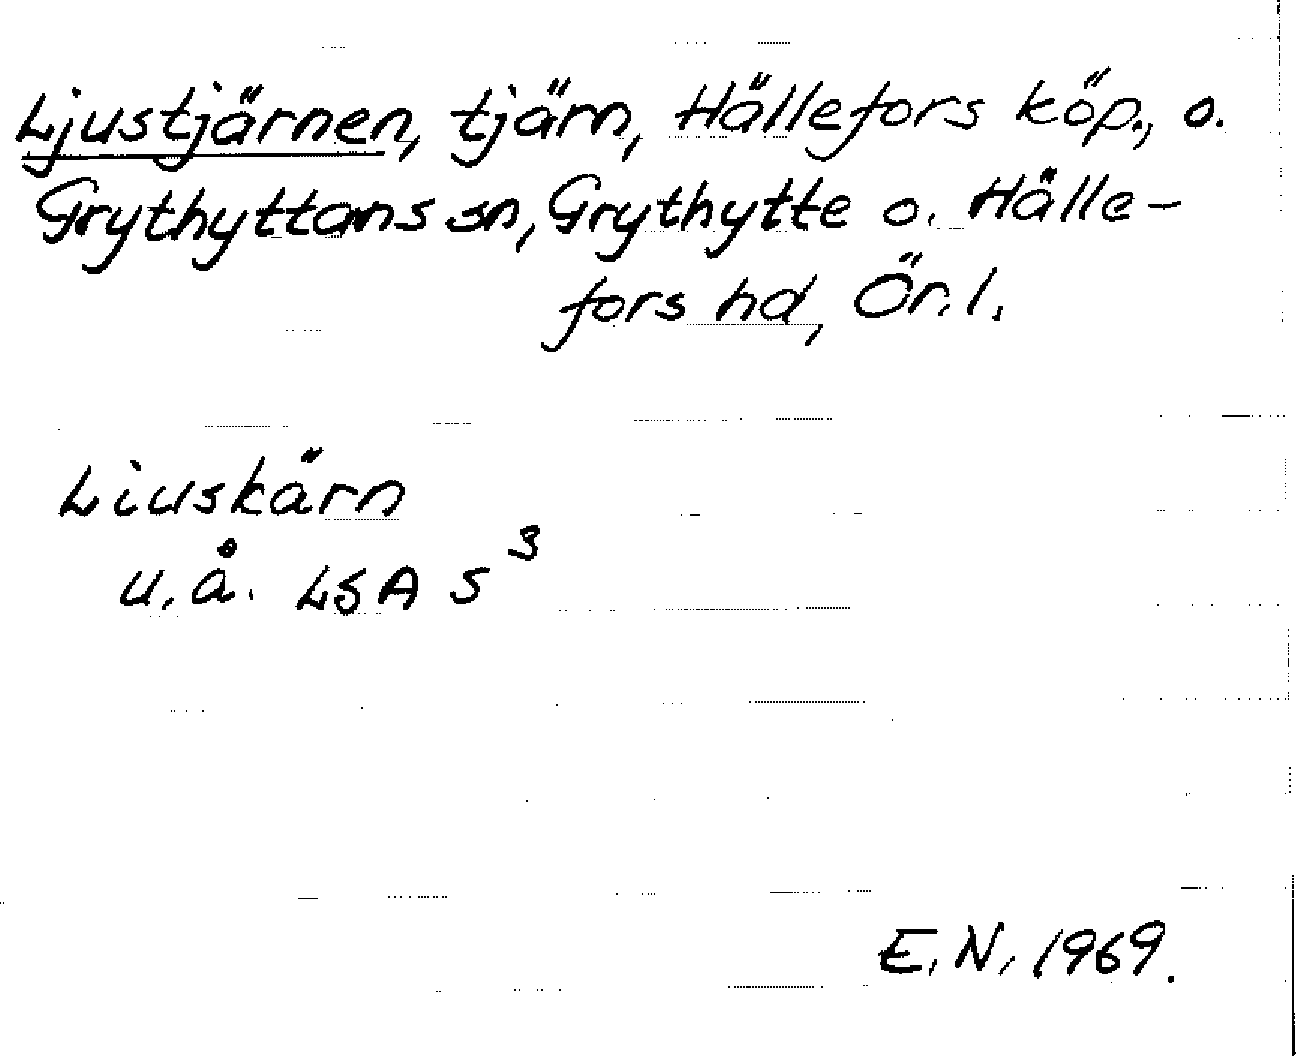 Ljustjärnen, tjärn, Hällefors köp., o.
Grythyttans sn, Grythytte o. Hälle-
fors hd, Ör.l.
Liuskärn
u.å. LSA S³
E.N. 1969.